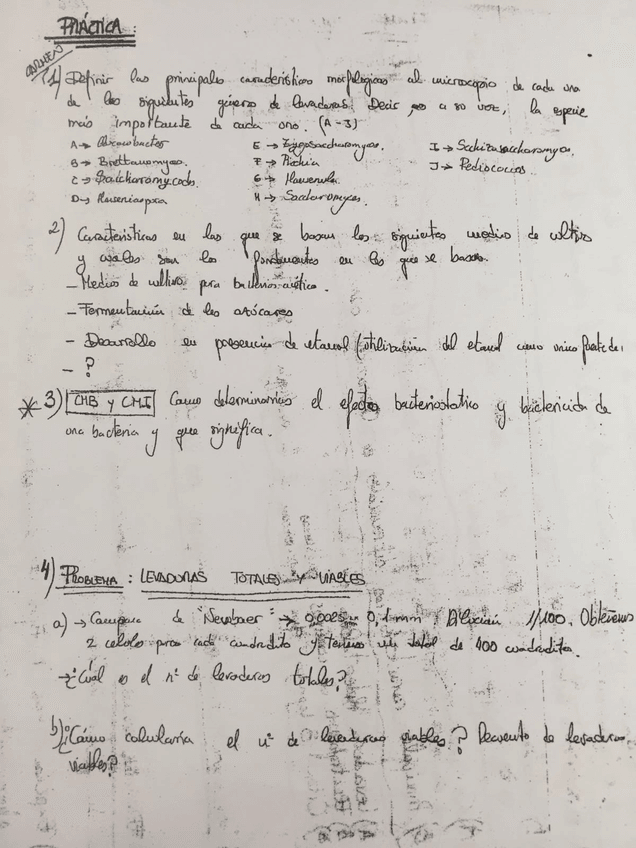 PRÁCTICA:
CARMEN
1) Definir las principales características morfológicas al microscopio de cada una
de los siguientes géneros de levaduras. Decir, a su vez, la especie
más importante de cada uno. (A-J)
A → 
B → Brettanomyces.
C → Saccharomycods.
D → Hanseniaspora
E → Zygosaccharomyces.
F → Pichia
G → Hansenula.
H → Saccharomyces.
I → Schizosaccharomyces.
J → Pediococcus.
2) Características en las que se basan los siguientes medios de cultivo
y cuales son los fundamentos en los que se basan.
- Medios de cultivo para bacterias acéticas.
- Fermentación de los azúcares
- Desarrollo en presencia de etanol (utilización del etanol como único fuente de
- ?
* 3) CMB y CMI Como determinarías el efecto bacteriostatico y bactericida de
una bacteria y que significa.
4) PROBLEMA: LEVADURAS TOTALES Y VIABLES
a) → Campara de "Neubaer" → 0,0025 0,1 mm. Dilución 1/100. Obtenemos
2 celulas para cada cuadradito y tenemos un total de 400 cuadraditos.
→ ¿Cuál es el nº de levaduras totales?
b) ¿Cómo calcularía el nº de levaduras viables? Recuento de levaduras
viables?